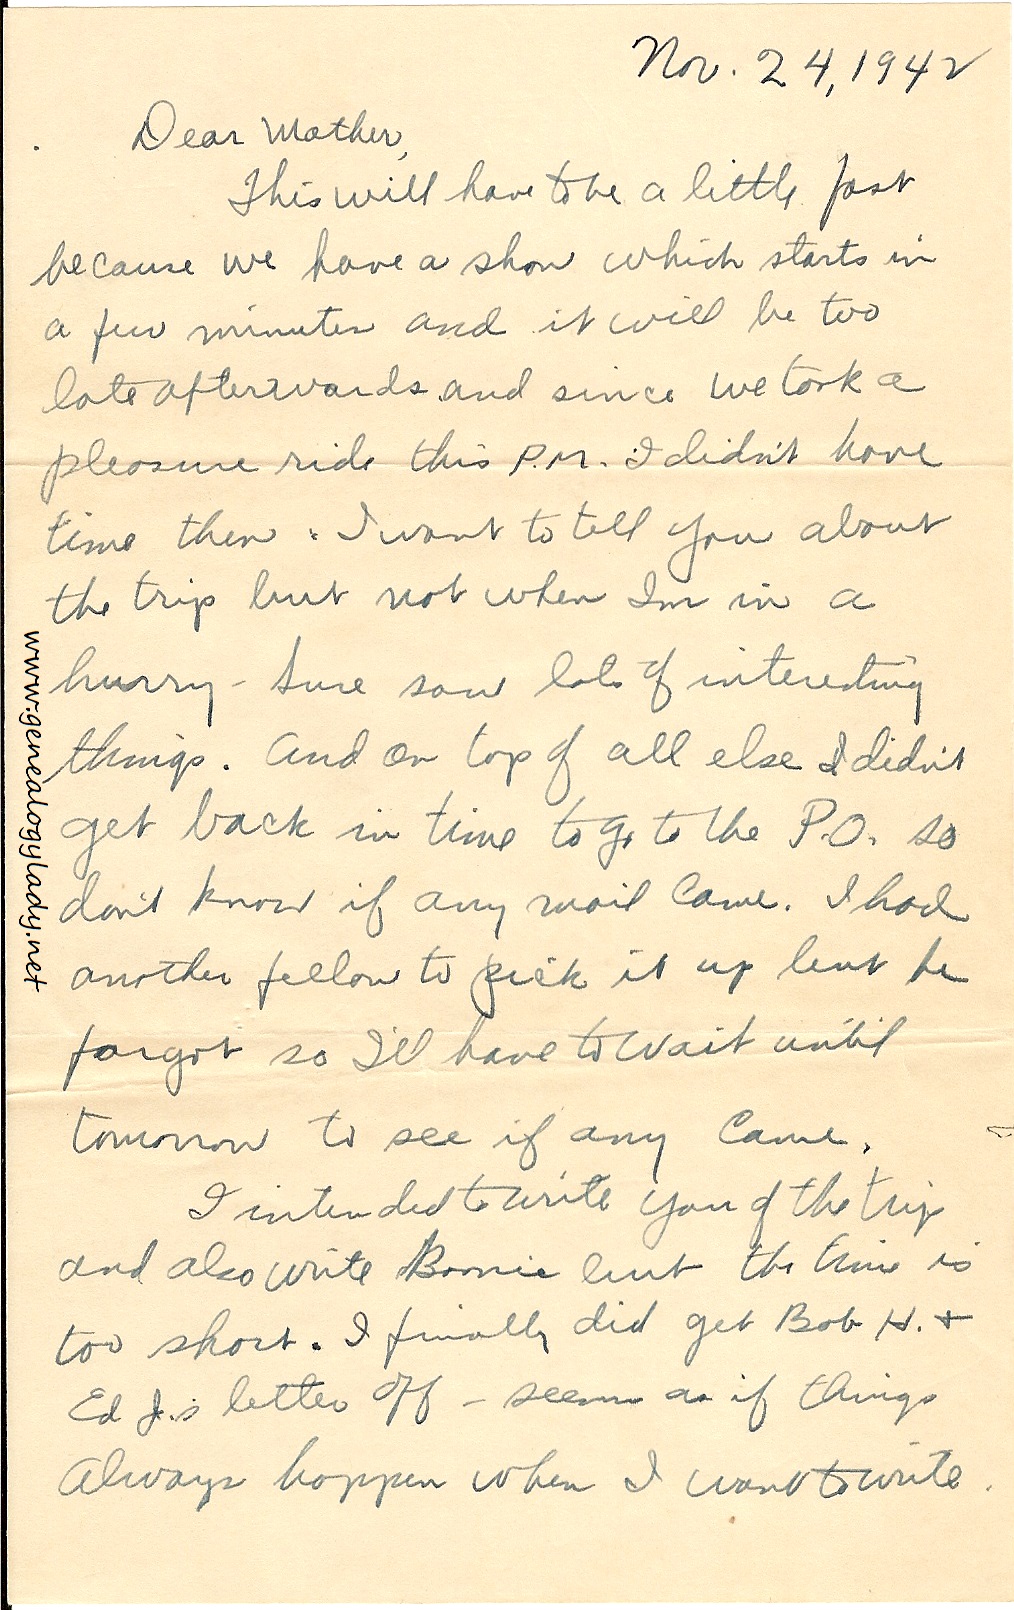 Nov. 24, 1942
Dear Mother,
This will have to be a little fast
because we have a show which starts in
a few minutes and it will be too
late afterwards and since we took a
pleasure ride this P.M. I didn't have
time then. I want to tell you about
the trip but not when I'm in a
hurry - Sure saw lots of interesting
things. And on top of all else I didn't
get back in time to go to the P.O. so
don't know if any mail came. I had
another fellow to pick it up but he
forgot so I'll have to wait until
tomorrow to see if any came.
I intended to write you of the trip
and also write Bonnie but the time is
too short. I finally did get Bob H. +
Ed J.'s letter off - seems as if things
always happen when I want to write.
www.genealogylady.net